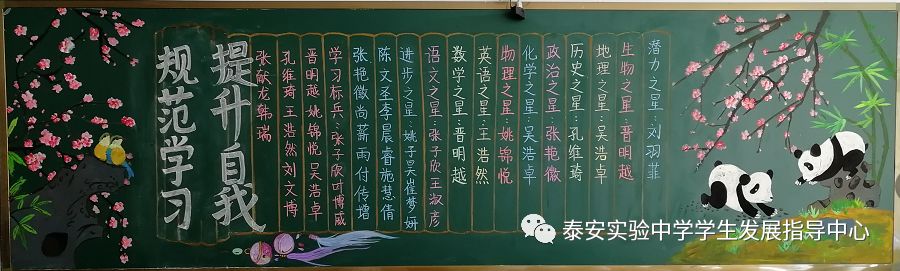 潜力之星:刘羽菲
生物之星:晋明越
地理之星:吴浩卓
历史之星:孔维琦
政治之星:张艳薇
化学之星:吴浩卓
物理之星:姚锦悦
英语之星:王浩然
数学之星:晋明越
语文之星:张子欣王淑彦
进步之星:姚子昊崔梦妍
陈文圣李晨睿施慧倩
张艳薇尚薪雨付传增
学习标兵:张子欣叶博威
晋明越姚锦悦吴浩卓
孔维琦王浩然刘文博
张献龙韩瑞
提升自我
规范学习
泰安实验中学学生发展指导中心